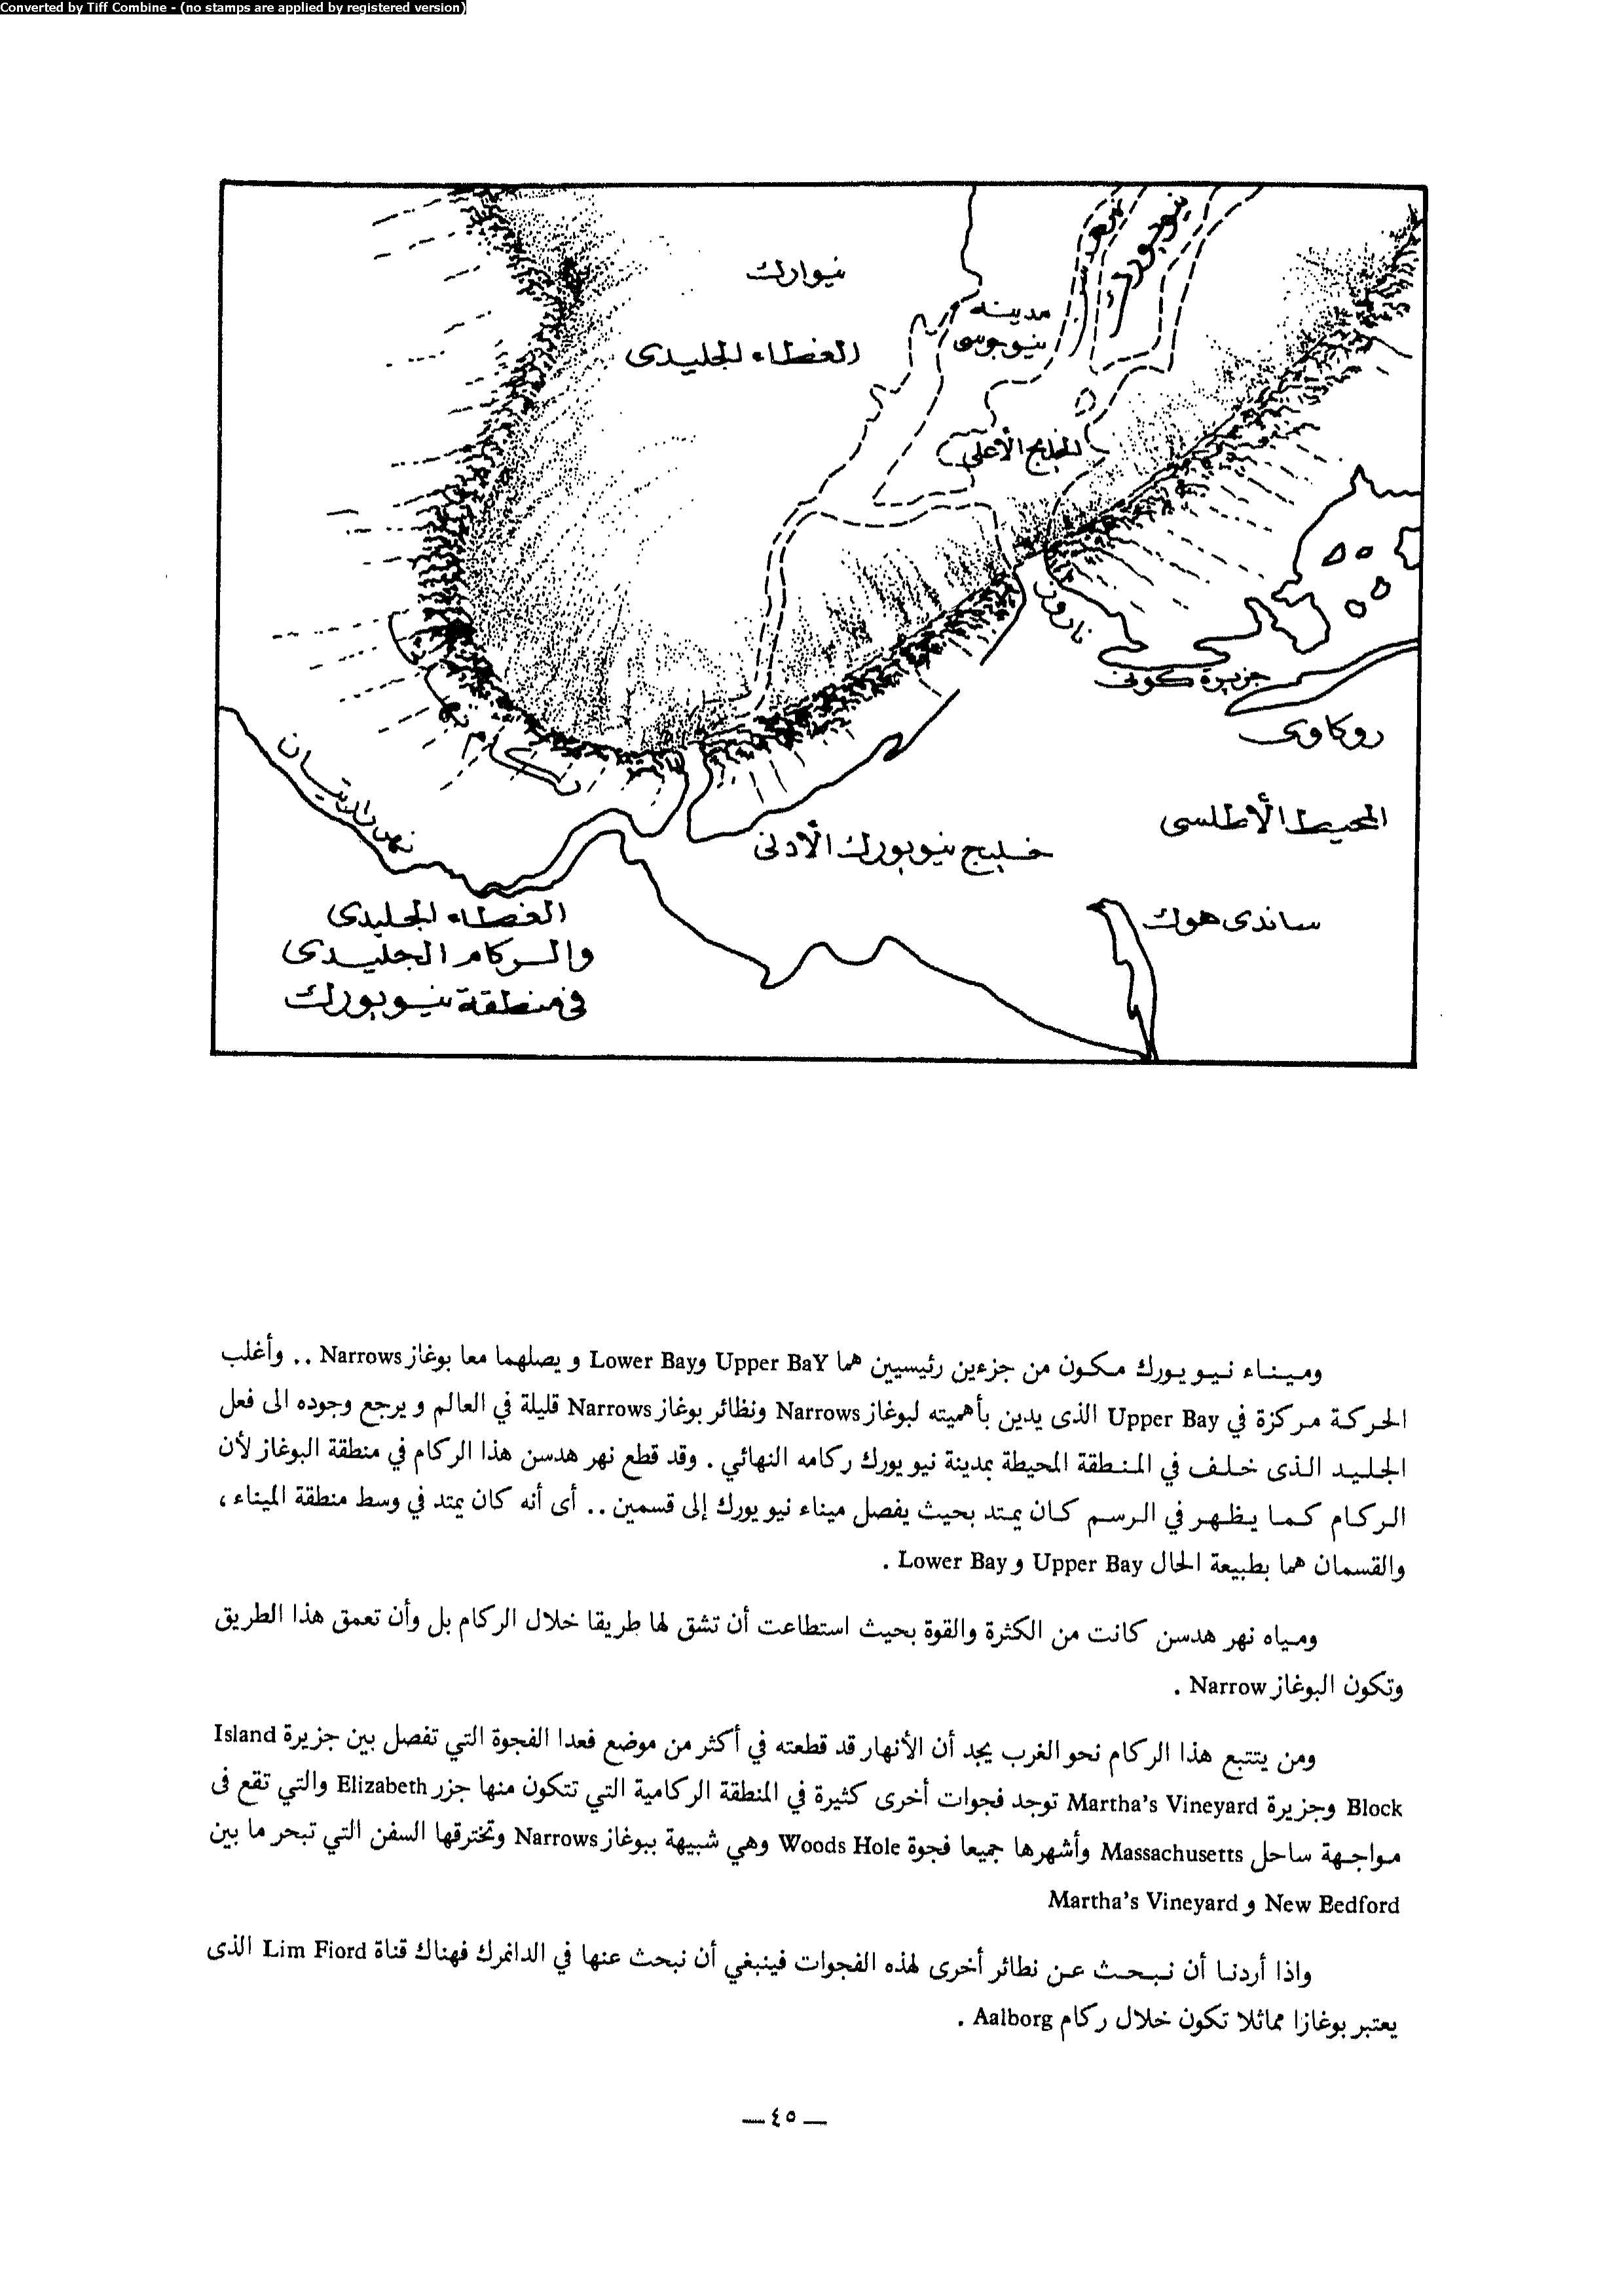 Converted by Tiff Combine - (no stamps are applied by registered version)
نيوارك
الغطاء الجليدى
مدينة
نيوجرسى
نهر
نيويورك
الخليج الأعلى
ناروز
جزيرة كونى
روكاوى
المحيط الأطلسى
ركام
نهر
خليج نيويورك الأدنى
ساندى هوك
الغطاء الجليدى
والركام الجليدى
فى منطقة نيويورك
وميناء نيو يورك مكون من جزءين رئيسيين هما Upper BaY وLower Bay و يصلهما معا بوغاز Narrows .. وأغلب
الحركة مركزة في Upper Bay الذى يدين بأهميته لبوغاز Narrows ونظائر بوغاز Narrows قليلة في العالم و يرجع وجوده الى فعل
الجليد الذى خلف في المنطقة المحيطة بمدينة نيو يورك ركامه النهائي . وقد قطع نهر هدسن هذا الركام في منطقة البوغاز لأن
الركام كما يظهر في الرسم كان يمتد بحيث يفصل ميناء نيو يورك إلى قسمين .. أى أنه كان يمتد في وسط منطقة الميناء ،
والقسمان هما بطبيعة الحال Upper Bay و Lower Bay .
ومياه نهر هدسن كانت من الكثرة والقوة بحيث استطاعت أن تشق لها طريقا خلال الركام بل وأن تعمق هذا الطريق
وتكون البوغاز Narrow .
ومن يتتبع هذا الركام نحو الغرب يجد أن الأنهار قد قطعته في أكثر من موضع فعدا الفجوة التي تفصل بين جزيرة Island
Block وجزيرة Martha's Vineyard توجد فجوات أخرى كثيرة في المنطقة الركامية التي تتكون منها جزر Elizabeth والتي تقع فى
مواجهة ساحل Massachusetts وأشهرها جميعا فجوة Woods Hole وهي شبيهة ببوغاز Narrows وتخترقها السفن التي تبحر ما بين
New Bedford و Martha's Vineyard
واذا أردنا أن نبحث عن نطائر أخرى لهذه الفجوات فينبغي أن نبحث عنها في الدانمرك فهناك قناة Lim Fiord الذى
يعتبر بوغازا مماثلا تكون خلال ركام Aalborg .
— ٤٥ —